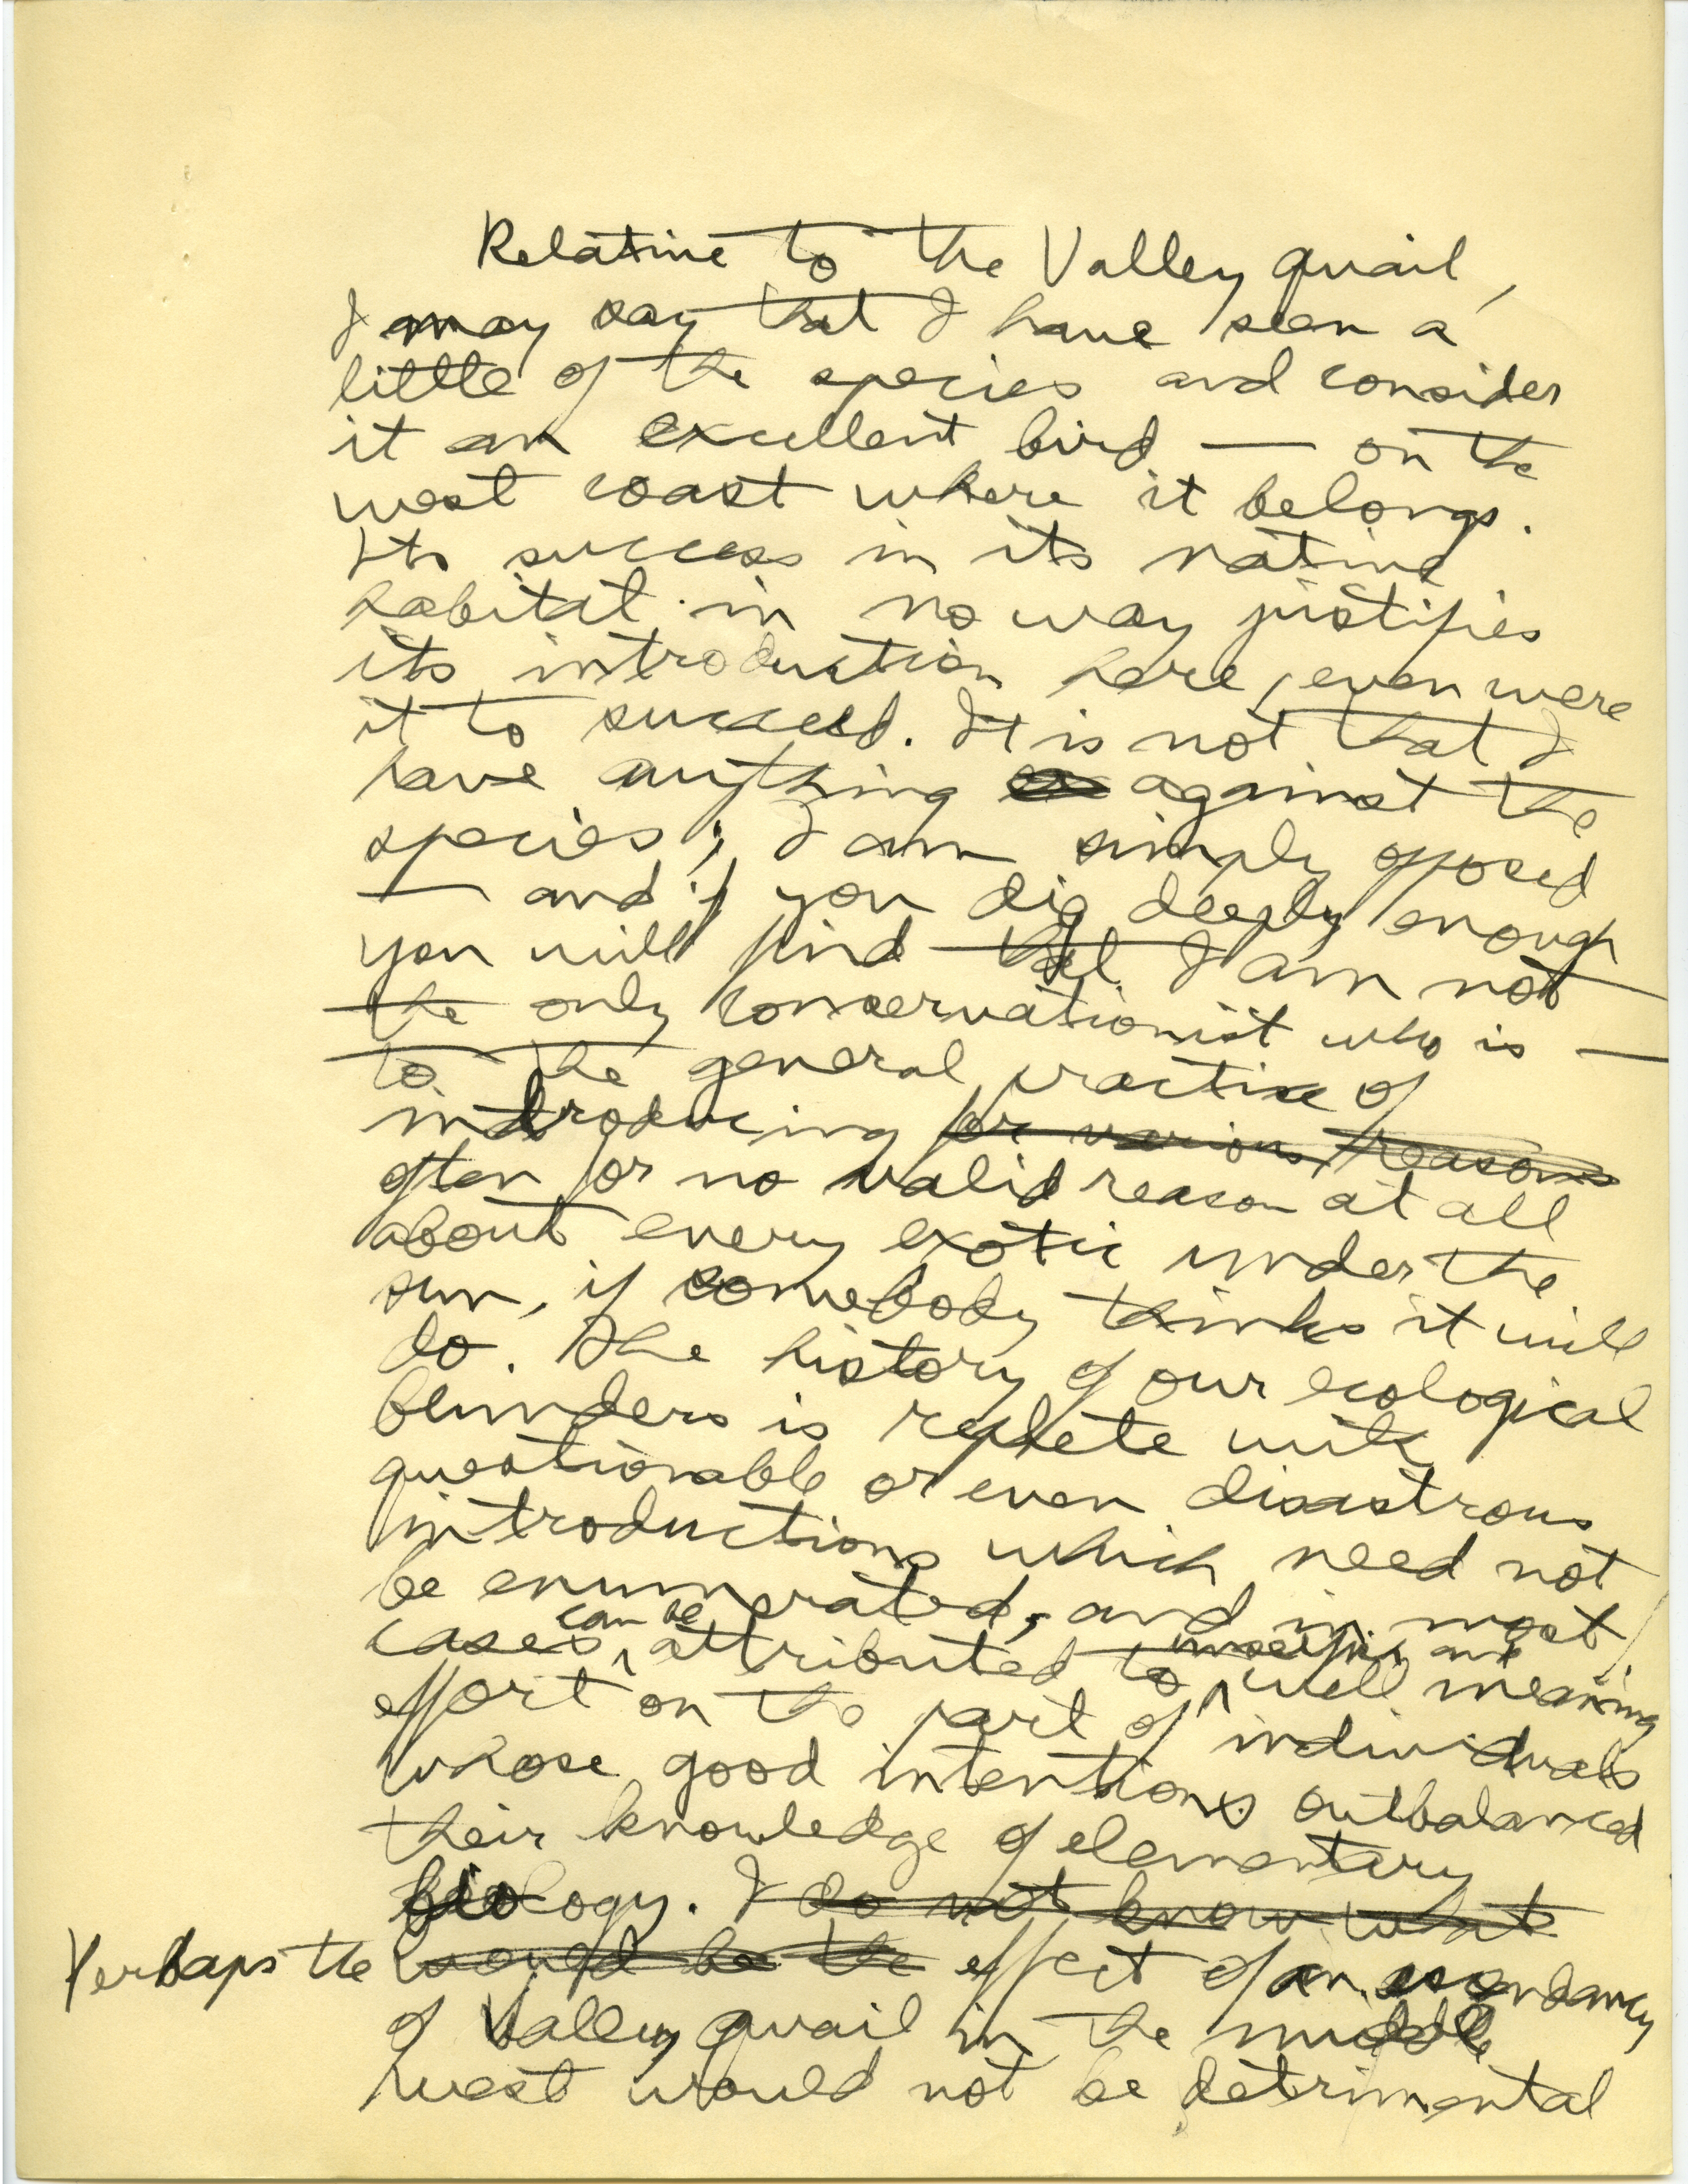 Relative to the Valley quail,
I may say that I have seen a
little of the species and consider
it an excellent bird — on the
west coast where it belongs.
Its success in its native
habitat in no way justifies
its introduction here, even were
it to succeed. It is not that I
have anything against the
species; I am simply opposed
— and if you dig deeply enough
you will find that I am not
the only conservationist who is —
to the general practice of
introducing for various reasons
often for no valid reason at all
about every exotic under the
sun, if somebody thinks it will
do. The history of our ecological
blunders is replete with
questionable or even disastrous
introductions which need not
be enumerated, and in most
cases can be attributed to unselfish and well meaning
effort on the part of individuals
whose good intentions outbalanced
their knowledge of elementary
biology. I do not know what
Perhaps the would be the effect of an ascendancy
of Valley quail in the middle
west would not be detrimental